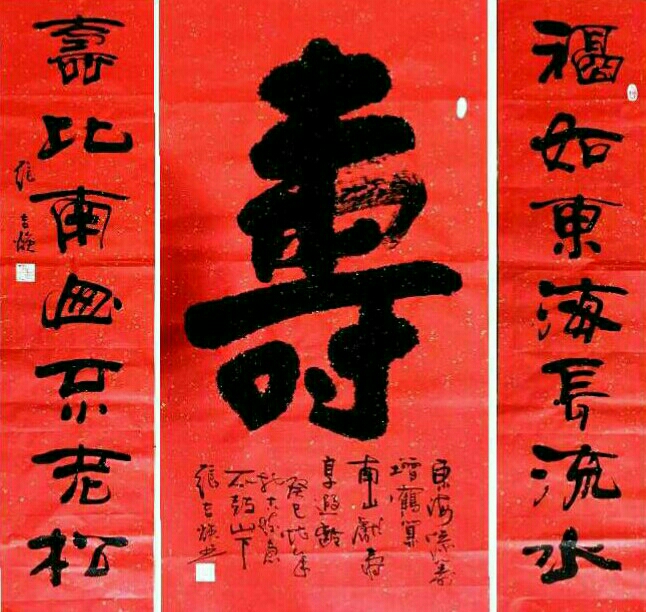 福如東海長流水
壽
東海添壽
增鶴算
南山獻壽
享遐齡
癸巳年
石鼓山下
張吉煥書
壽比南山不老松
張吉煥